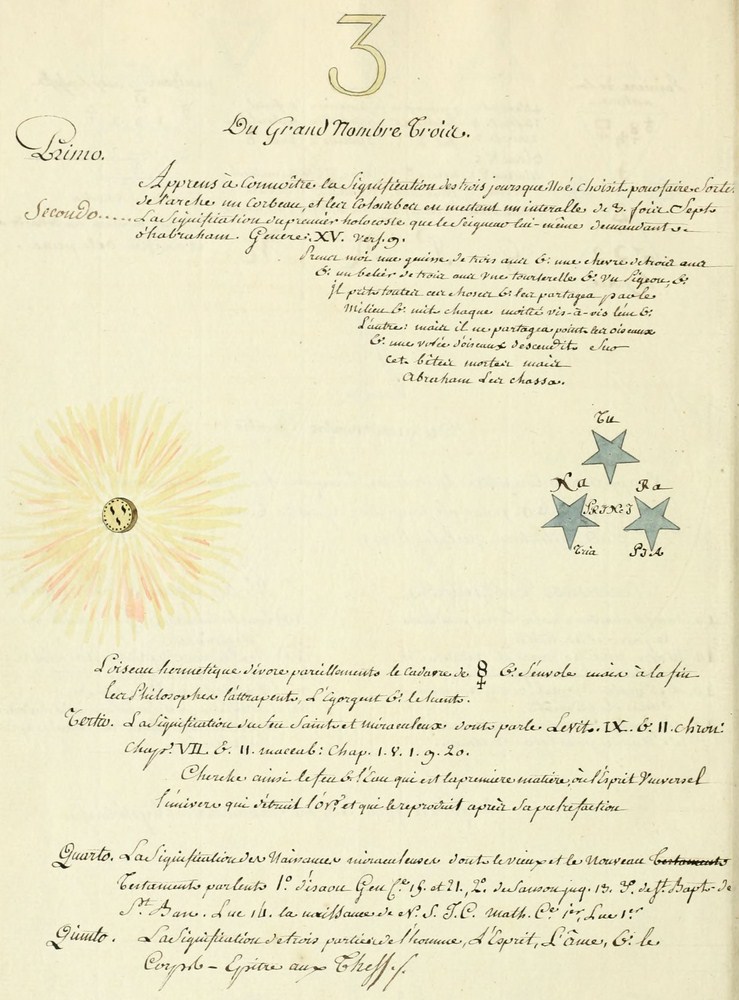 3
Du Grand Nombre Trois.
Primo.
Apprens à Connoître la Signification des trois jours que Noé choisit pour faire Sortir
de l'arche un Corbeau, et les Colombes en mettant un interalle de 3. fois Sept
Secondo..... La Signification du premier holocoste que le Seigneur lui-même demandant
d'habraham. Genese: XV. vers. 9.
Prenez moi une genisse de trois ans & une chevre de trois ans
& un belier de trois ans une tourterelle & un Pigeon, &
il prit toutes ces choses & les partagea par le
Milieu & mit chaque moitié vis-à-vis l'une &
L'autre: mais il ne partagea point les oiseaux
& une volée d'oiseaux descendit sur
cet bêtes mortes mais
Abraham les chassa.
Tu
Na Ra
Tria PIA
L'oiseau hermetique dévore pareillement le cadavre de & S'envole mais à la fin
les Philosophes l'attrapent, L'Egorgent & le tuent.
Tertio. La Signification du feu Saint et miraculeux dont parle Levit. IX. & II. Chron:
Chap. VII. & II. maccab: Chap. 1. 8. 1. 9. 20.
Cherche ainsi le feu & l'Eau qui est la premiere matiere, où l'Esprit Universel
l'univers qui détruit l'or et qui le reproduit après Sa putrefaction
Quarto. La Signification des Naissances miraculeuses dont le vieux et le Nouveau Testament
Testament parlent 1º. d'isaac Gen. Cre. 18. et 21. 2º. de Sanson jug. 13. 3º. de St. Bapt. de
St. Luc 14. la naissance de N. S. J. C. Math. Ce. 1er, Luc 1er
Quinto. La Signification de trois parties de l'homme, L'Esprit, L'Âme, & le
Corps – Epitre aux Thess.